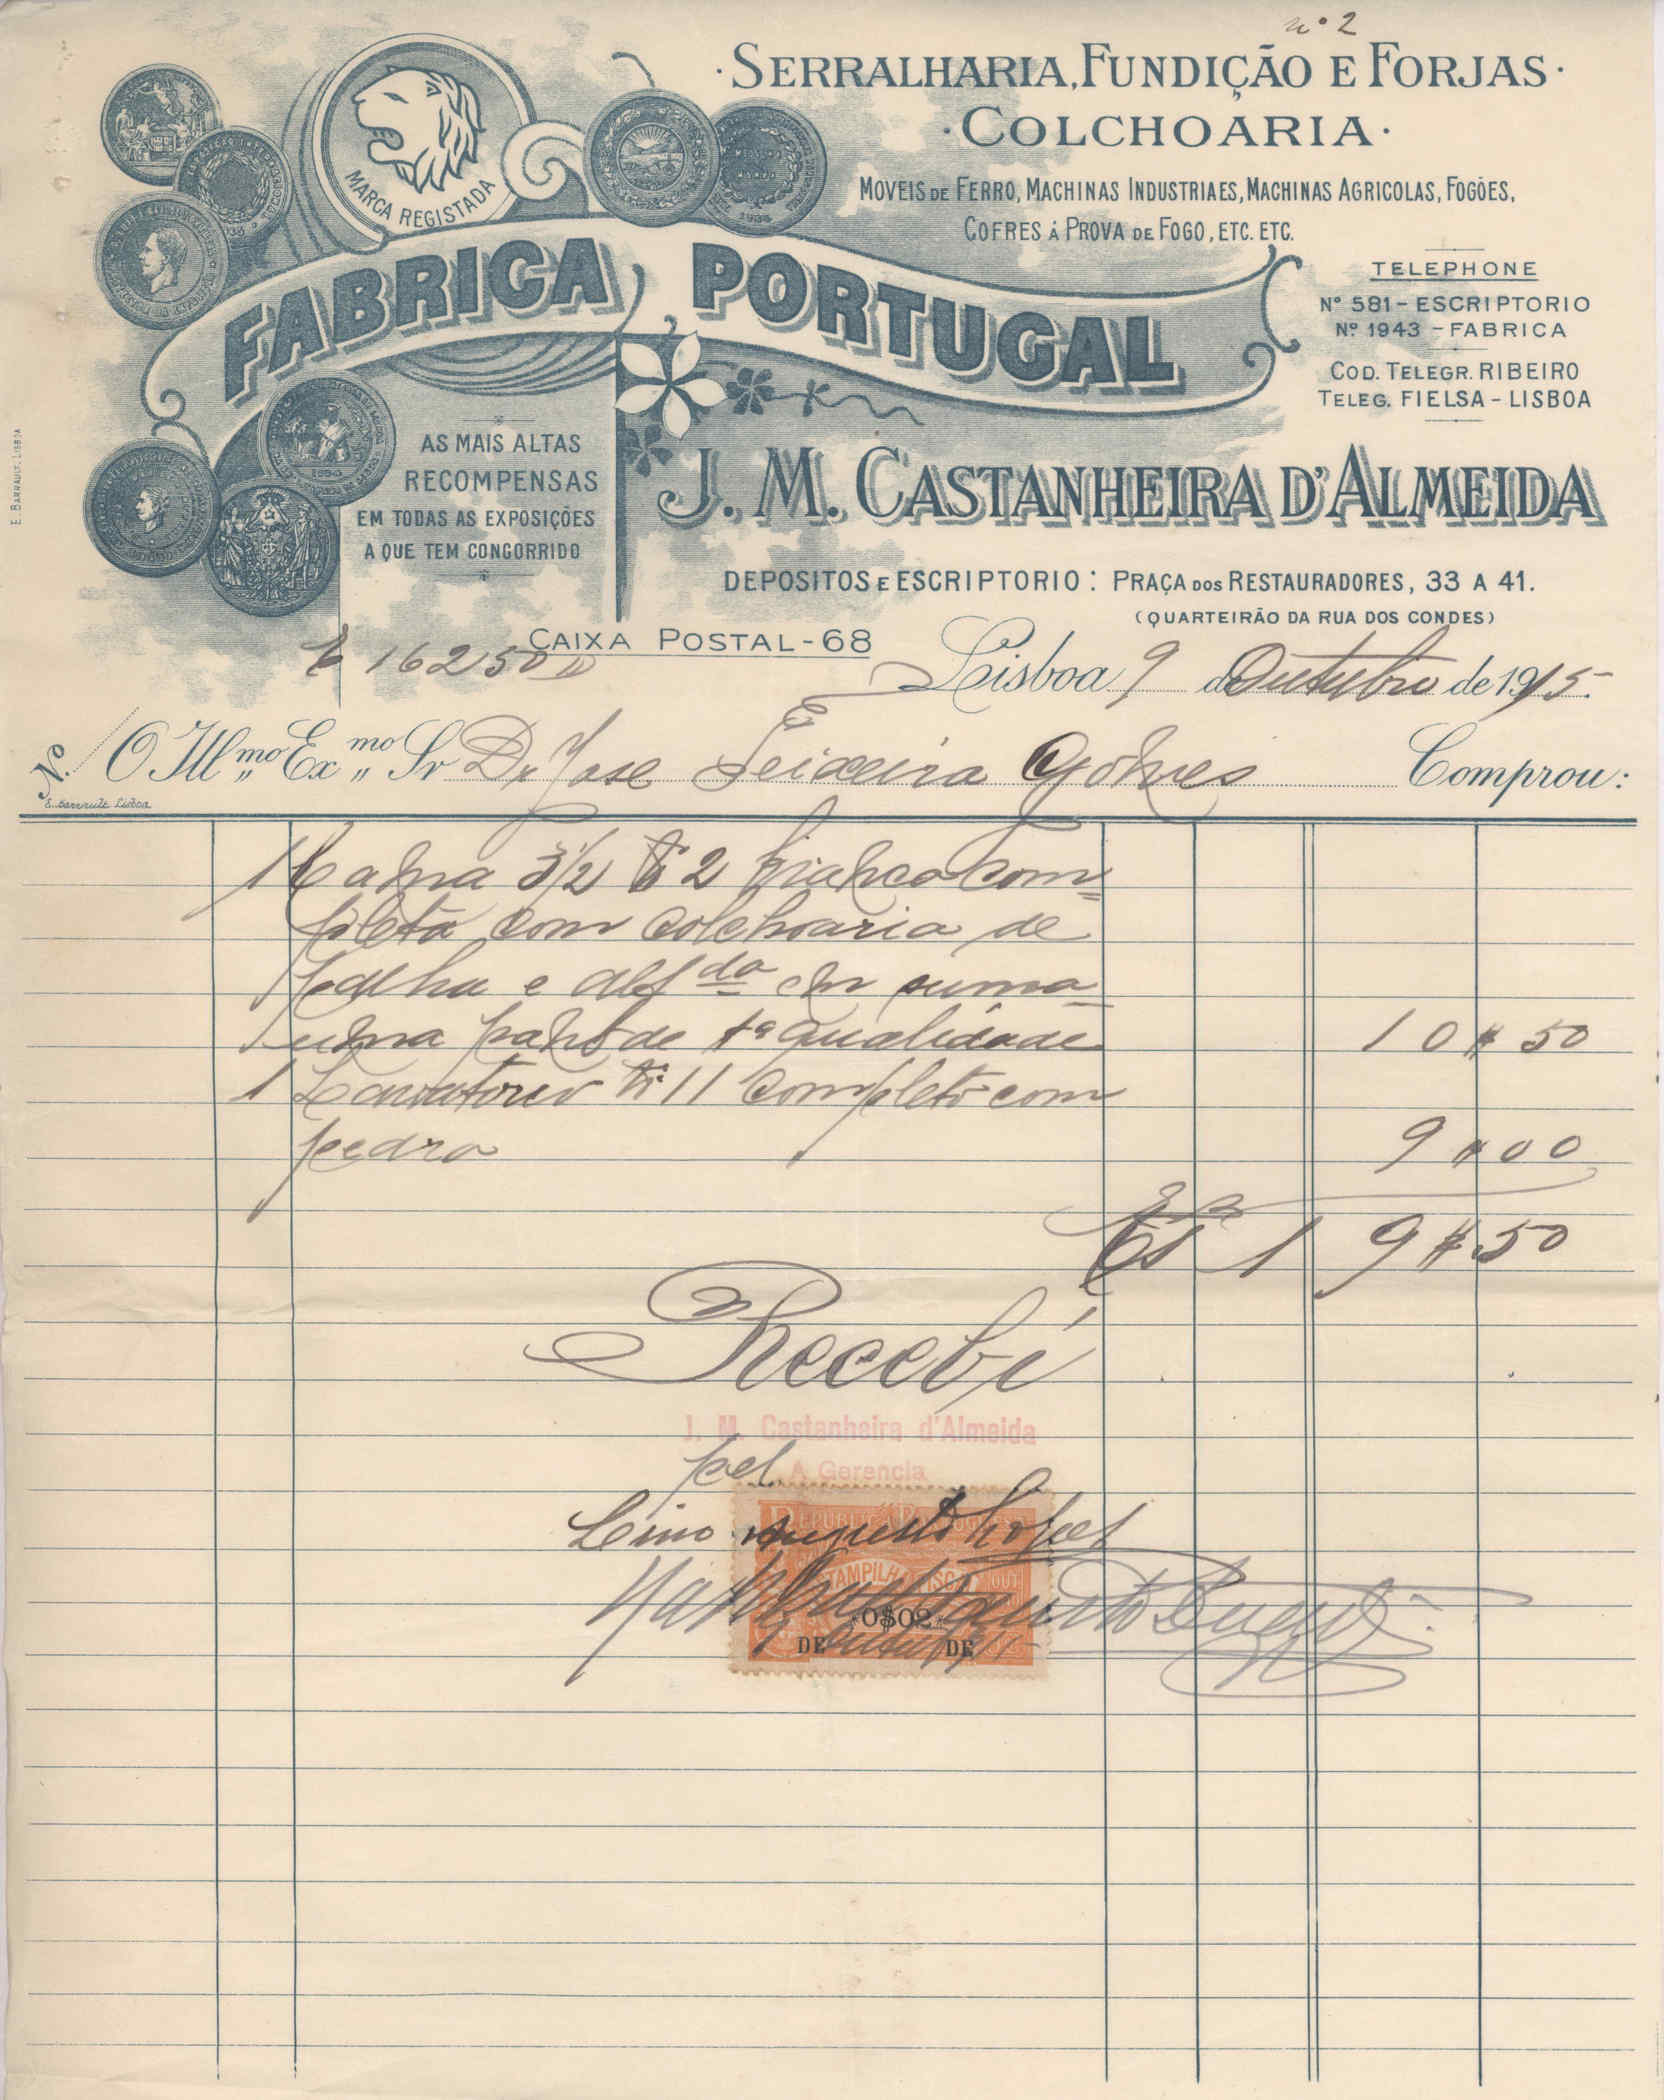 nº 2
· SERRALHARIA, FUNDIÇÃO E FORJAS ·
· COLCHOARIA ·
MOVEIS DE FERRO, MACHINAS INDUSTRIAES, MACHINAS AGRICOLAS, FOGÕES,
COFRES Á PROVA DE FOGO, ETC. ETC.
MARCA REGISTADA
FABRICA PORTUGAL
TELEPHONE
Nº 581 - ESCRIPTORIO
Nº 1943 - FABRICA
COD. TELEGR. RIBEIRO
TELEG. FIELSA - LISBOA
AS MAIS ALTAS
RECOMPENSAS
EM TODAS AS EXPOSIÇÕES
A QUE TEM CONCORRIDO
J. M. CASTANHEIRA D'ALMEIDA
DEPOSITOS E ESCRIPTORIO: PRAÇA DOS RESTAURADORES, 33 A 41.
(QUARTEIRÃO DA RUA DOS CONDES)
E. BARRAULT, LISBOA
CAIXA POSTAL - 68
16250
Lisboa 9 de Outubro de 1915
Nº. O Illmo Exmo Sr Dr José Teixeira Gomes Comprou:
E. Barrault Lisboa
1 Cama 3 1/2 2 branca com=
pleta com colchoaria de
palha e alfda em suma
uma panno de 1ª qualidade 10$50
1 Lavatorio nº 11 completo com
pedra 9$00
19$50
Recebi
J. M. Castanheira d'Almeida
pel A Gerencia
Lino Augusto Lopes
REPUBLICA PORTUGUESA
ESTAMPILHA FISCAL
OUT
0$02
DE DE